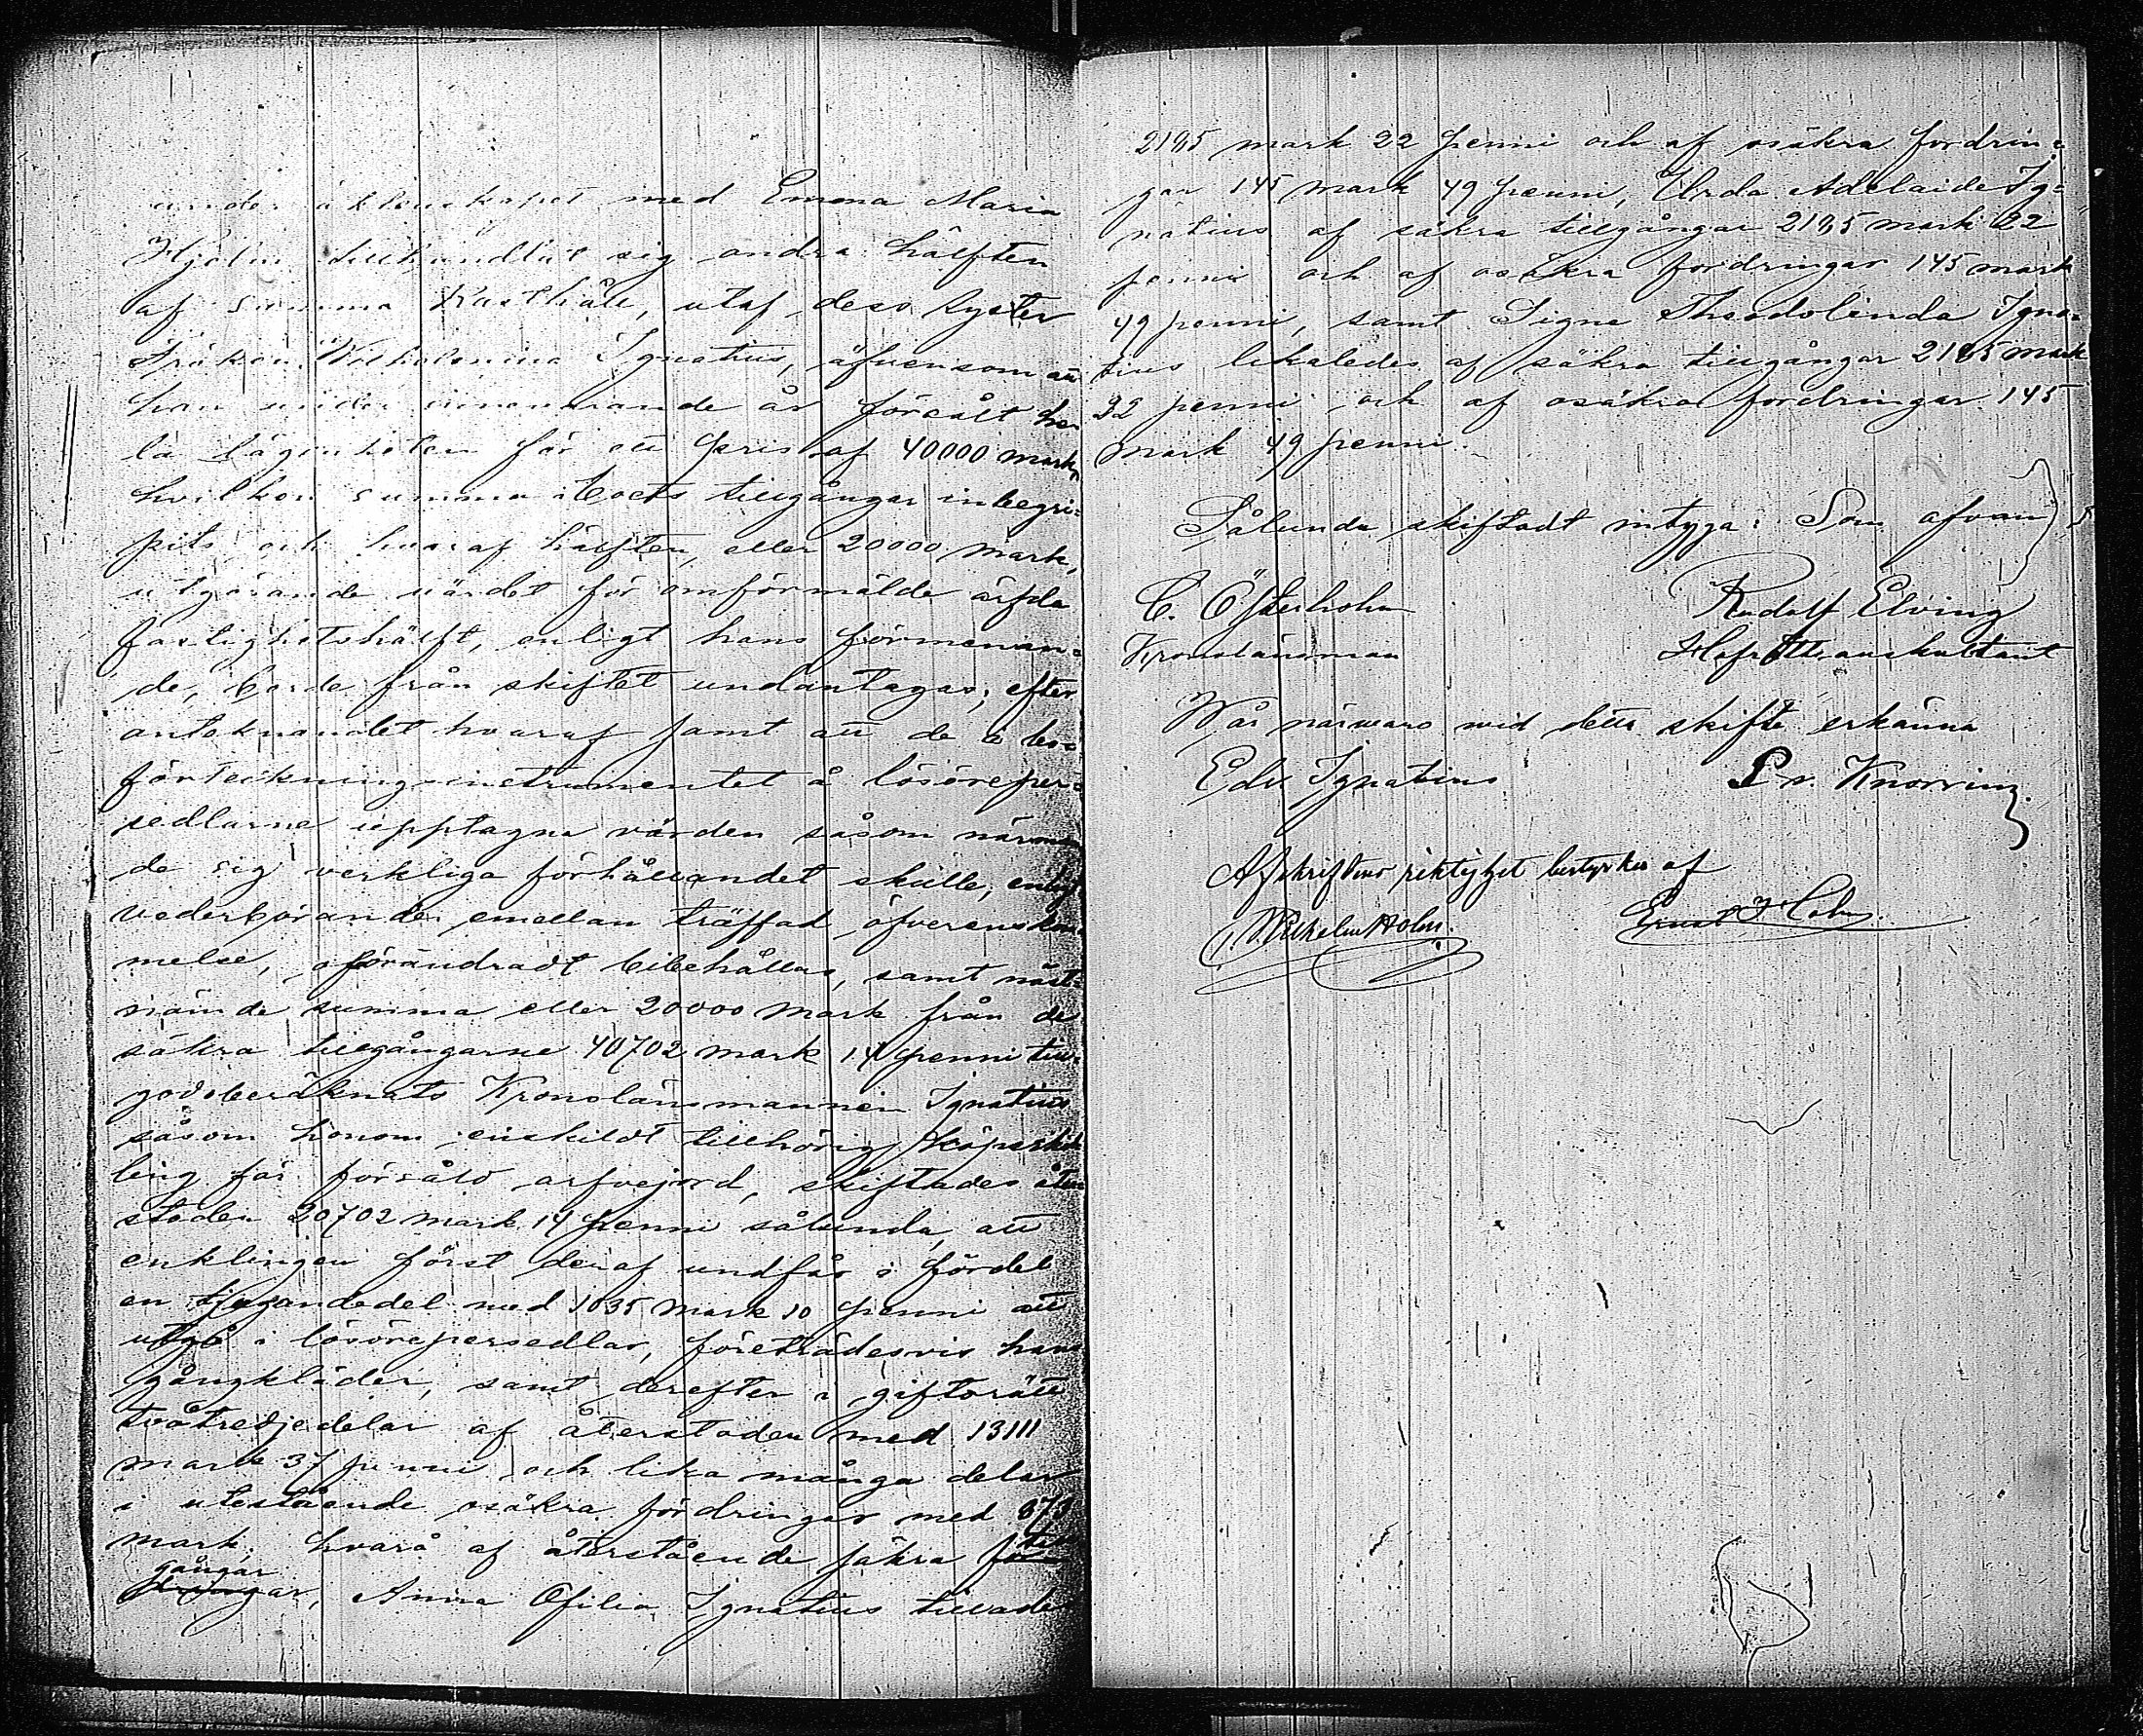 under äktenskapet med Emma Maria
Hjelm tillhandlat sig andra hälften
af samma Rusthåll, utaf dess Syster
Fröken Wilhelmina Ignatius, äfvensom att
han under innevarande år försålt he-
la lägenheten för ett pris af 40000 mark,
hvilken summa i boets tillgångar inbegri=
pits och hvaraf hälften, eller 20000 mark,
utgörande värdet för omförmälde ärfda
fastighetshälft, enligt hans förmenan=
de, borde från skiftet undantagas; efter
antecknandet hvaraf samt att de i bo=
förteckningsinstrumentet å lösöreper=
sedlarne upptagne värden såsom närman
de sig verkliga förhållandet skulle, enligt
vederbörande emellan träffad öfverenskom
melse, oförändradt bibehållas, samt näst=
nämnde summa eller 20000 mark från de
säkra tillgångarne 40702 mark 14 penni till=
godoberäknats Kronolänsmannen Ignatius
såsom honom enskildt tillhörig köpeskil
ling för försåld arfvejord, skiftades åter
stoden 20702 mark 14 penni sålunda, att
enklingen först deraf undfår i fördel
en tjugondedel med 1035 mark 10 penni att
utgå i lösörepersedlar, företrädesvis hans
gångkläder, samt derefter i giftorätt
tvåtredjedelar af återstoden med 13111
mark 37 penni och lika många delar
i utestående osäkra fordringar med 873
mark; hvarå af återstående säkra till
gångar
Anna Ofilia Ignatius tillades
2185 mark 22 penni och af osäkra fordrin=
gar 145 mark 49 penni, Urda Adelaide Ig=
natius af säkra tillgångar 2185 mark 22
penni och af osäkra fordringar 145 mark
49 penni, samt Signe Theodolinda Igna-
tius likaledes af säkra tillgångar 2185 mark
22 penni och af osäkra fordringar 145
mark 49 penni.
Sålunda skiftadt intyga: Som ofvan
C. Österholm Rudolf Elving
Kronolänsman Hofrättsauskultant
Wår närwaro wid detta skifte erkänna
Edv Ignatius L v. Knorring.
Afskriftens riktighet bestyrkes af
Wilhelm Holm. Ernst Holm.